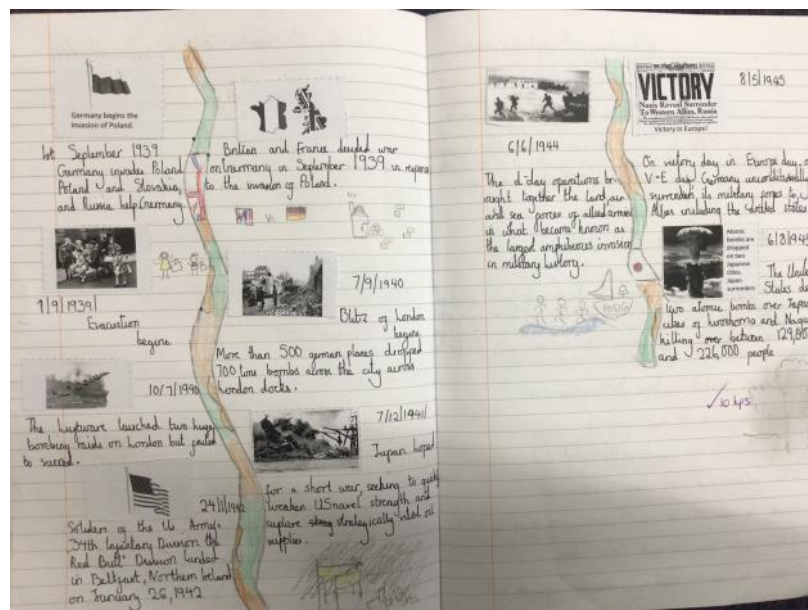 Germany begins the
Invasion of Poland.
1st September 1939
Germany invades Poland
Poland and Slovakia,
and Russia help Germany.
Britian and France decided war
on Germany in September 1939 in response
to the invasion of Poland.
Vs
1/9/1939
Evacuation
begins.
7/9/1940
Blitz of London
begins
More than 500 german planes dropped
700 tons bombs across the city across
London docks.
10/7/1940
The Luftwave lauched two huge
bombing raids on London but failed
to succeed.
7/12/1941
Japan hoped
for a short war, seeking to quickly
weaken US navel strength and
capture strategically vital oil
supplies.
24/1/1942
Soliders of the Us Army,
34th Infantry Division the
Red Bull Division landed
in Belfast, Northern Ireland
on January 26, 1942
6/6/1944
The d-day operations br
ought together the land, air
and sea forces of allied armies
in what became known as
the largest amphibious invasion
in military history.
VICTORY
Nazis Reveal Surrender
To Western Allies, Russia
Victory in Europe!
8/5/1945
On victory day in Europe day, or
V-E day Germany unconditionally
surrender its military forces to
Allies including the United states
Atomic
bombs are
dropped
on two
Japanese
cities.
Japan
surrenders
6/8/1945
The Unite
States de
two atomic bombs over Japa
cities of hiroshoma and Naga
killing over between 129,00
and 226,000 people
✓ 10 hps